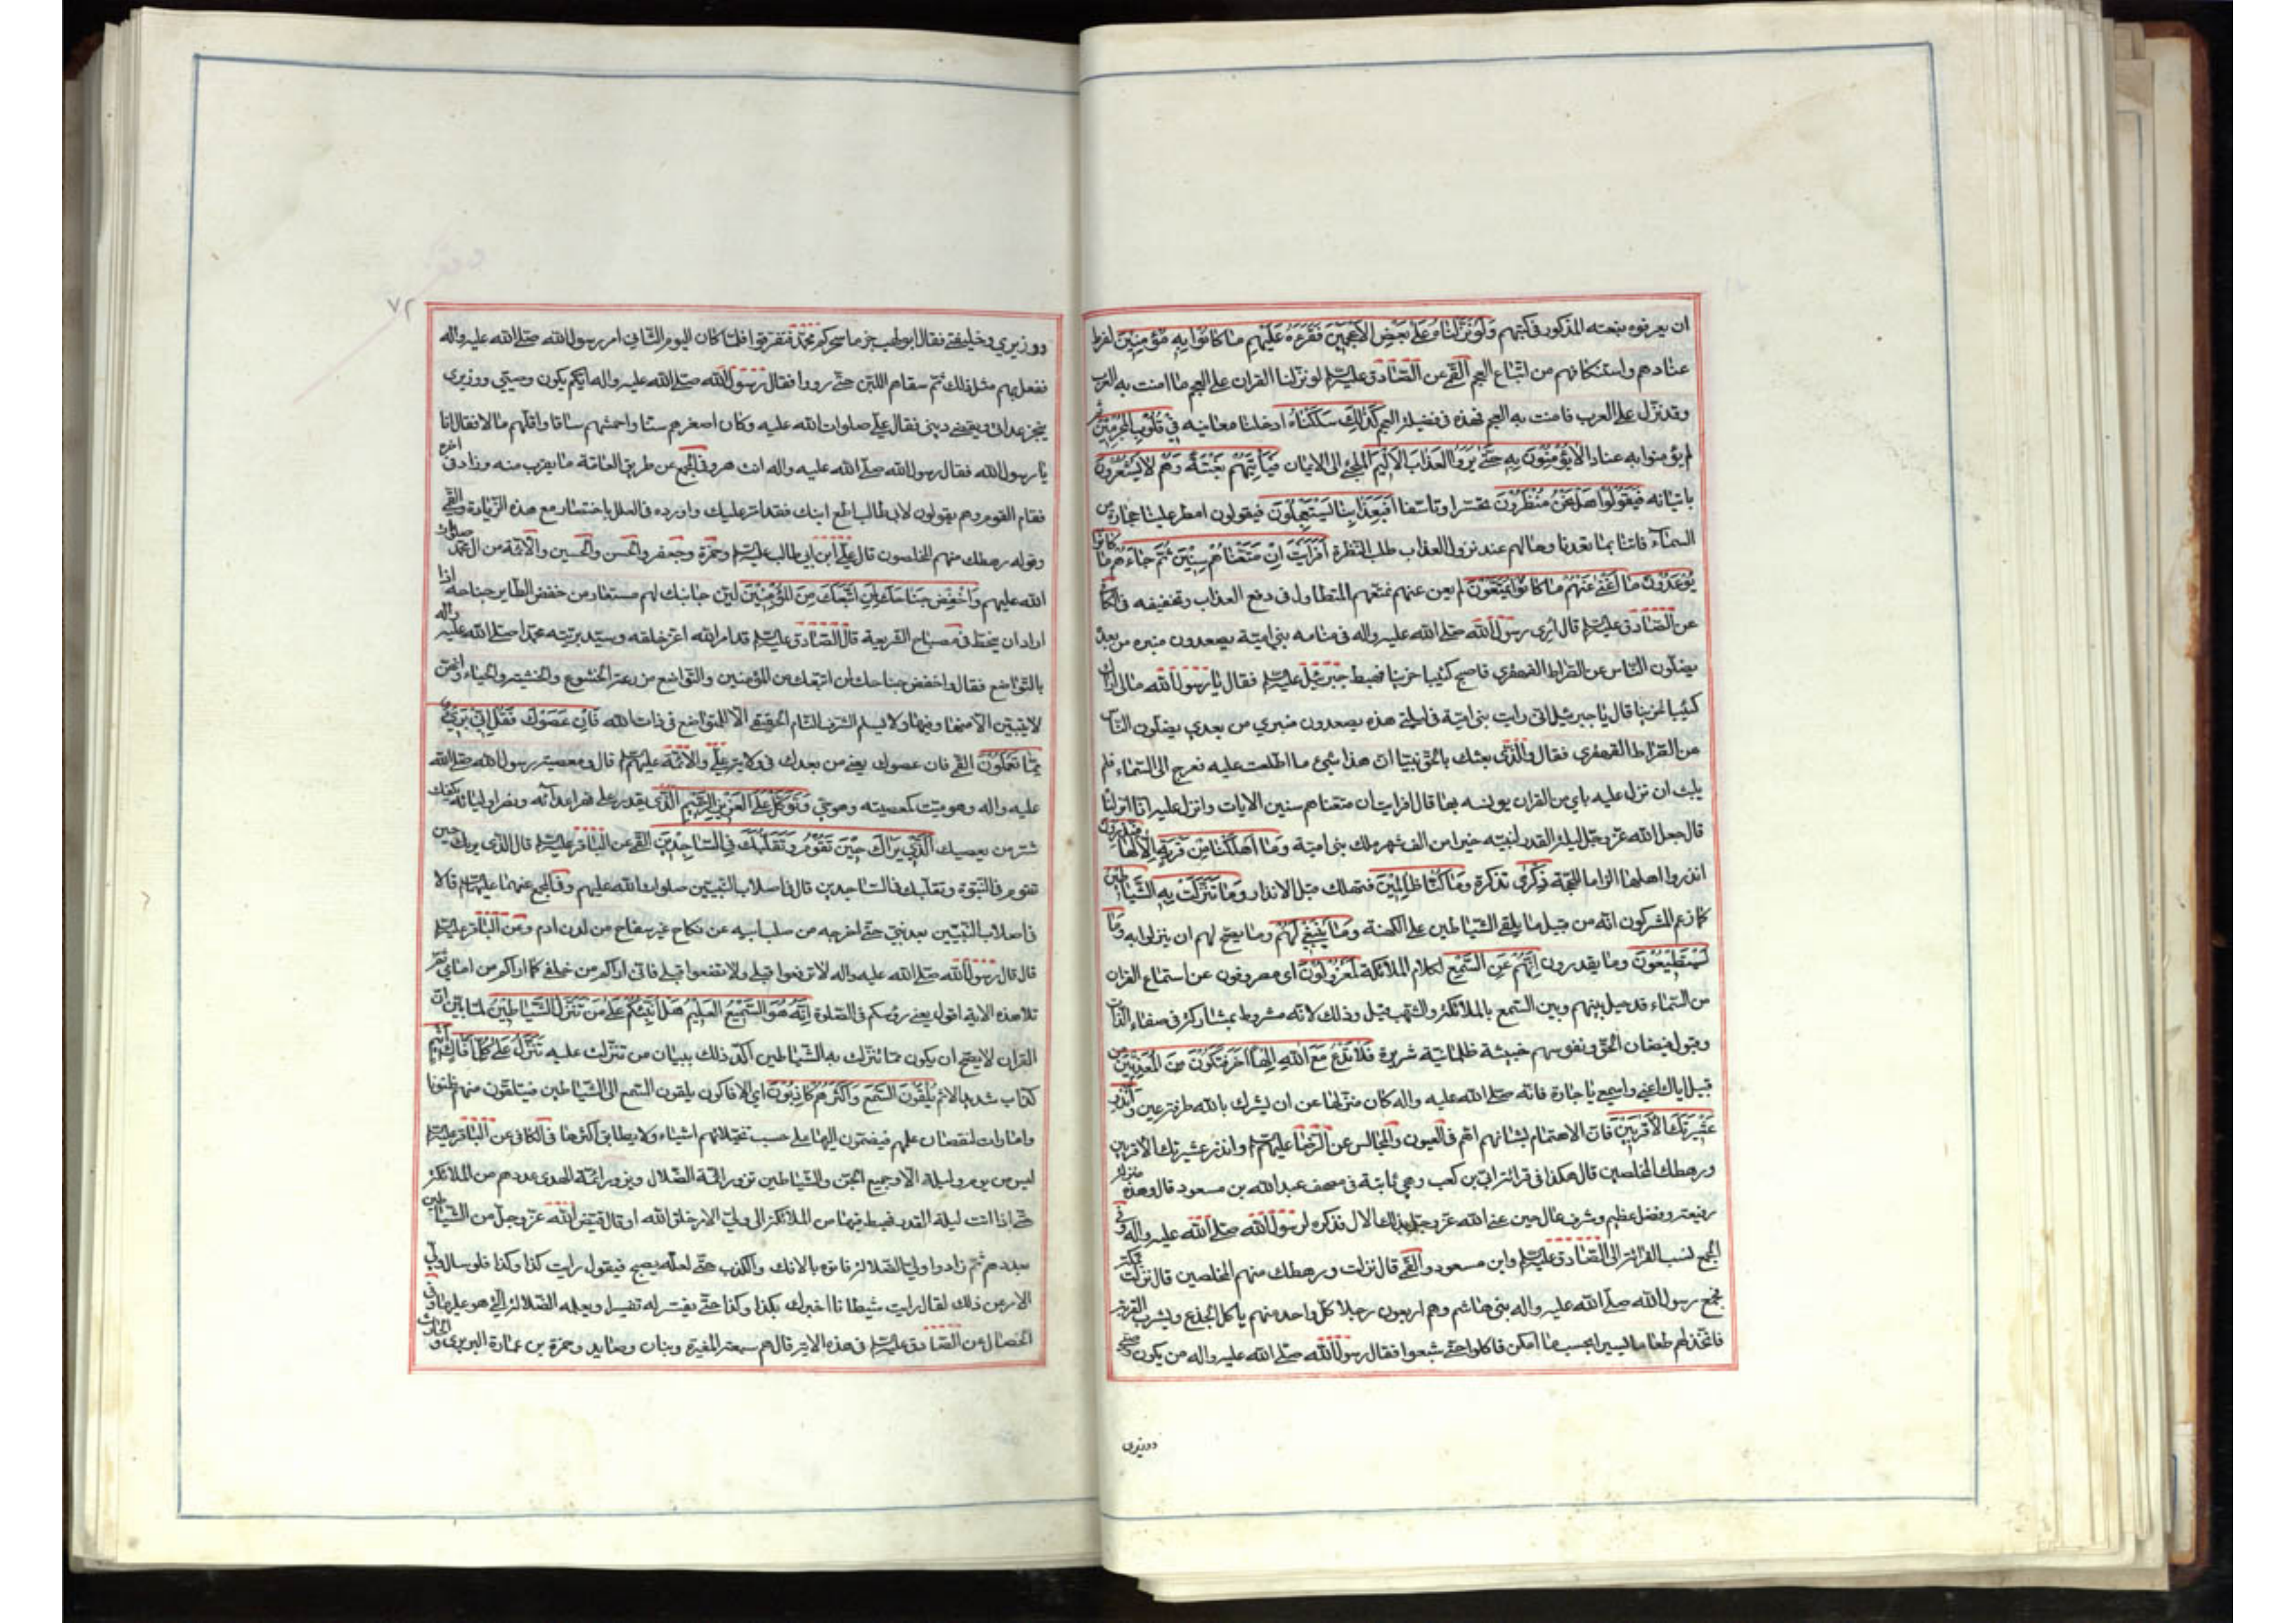 ان يعرفوه بنعته المذكور في كتبهم وَلَوْ نَزَّلْنَاهُ عَلَى بَعْضِ الْأَعْجَمِينَ فَقَرَءَهُ عَلَيْهِمْ مَا كَانُوا بِهِ مُؤْمِنِينَ لفرط
عنادهم واستنكافهم من اتباع العجم القمي عن الصادق عليه السلم لو نزلنا القران على العجم ما امنت به العرب
وقد نزل على العرب فامنت به العجم فهذه فضيلة العجم كَذَلِكَ سَلَكْنَاهُ ادخلنا معانيه فِي قُلُوبِ الْمُجْرِمِينَ ثم
لم يؤمنوا به عنادا لَا يُؤْمِنُونَ بِهِ حَتَّى يَرَوُا الْعَذَابَ الْأَلِيمَ الملجئ الى الايمان فَيَأْتِيَهُمْ بَغْتَةً وَهُمْ لَا يَشْعُرُونَ
باتيانه فَيَقُولُوا هَلْ نَحْنُ مُنْظَرُونَ تحسرا وتاسفا أَفَبِعَذَابِنَا يَسْتَعْجِلُونَ فيقولون امطر علينا حجارة من
السماء فاتنا بما تعدنا وحالهم عند نزول العذاب طلب النظرة أَفَرَأَيْتَ إِنْ مَتَّعْنَاهُمْ سِنِينَ ثُمَّ جَاءَهُمْ مَا كَانُوا
يُوعَدُونَ مَا أَغْنَى عَنْهُمْ مَا كَانُوا يُمَتَّعُونَ لم يغن عنهم تمتعهم المتطاول في دفع العذاب وتخفيفه في الكافي
عن الصادق عليه السلم قال اري رسول الله صلى الله عليه واله في منامه بني امية يصعدون منبره من بعده
يضلون الناس عن الصراط القهقري فاصبح كئيبا حزينا فهبط جبرئيل عليه السلم فقال يا رسول الله مالي اراك
كئيبا حزينا قال يا جبرئيل اني رايت بني امية في ليلتي هذه يصعدون منبري من بعدي يضلون الناس
عن الصراط القهقري فقال والذي بعثك بالحق نبيا ان هذا شيئ ما اطلعت عليه فعرج الى السماء فلم
يلبث ان نزل عليه باي من القران يونسه بها قال افرايت ان متعناهم سنين الايات وانزل عليه انا انزلنا
قال جعل الله عز وجل ليلة القدر لنبيه خيرا من الف شهر ملك بني امية وَمَا أَهْلَكْنَا مِنْ قَرْيَةٍ إِلَّا لَهَا مُنْذِرُونَ
انذروا اهلها الزاما للحجة ذِكْرَى تذكرة وَمَا كُنَّا ظَالِمِينَ فنهلك قبل الانذار وَمَا تَنَزَّلَتْ بِهِ الشَّيَاطِينُ
كما زعم المشركون انه من قبيل ما يلقي الشياطين على الكهنة وَمَا يَنْبَغِي لَهُمْ وما يصح لهم ان ينزلوا به وَمَا
يَسْتَطِيعُونَ وما يقدرون إِنَّهُمْ عَنِ السَّمْعِ لكلام الملائكة لَمَعْزُولُونَ اى مصروفون عن استماع القران
من السماء قد حيل بينهم وبين السمع بالملائكة والشهب قيل وذلك لانه مشروط بمشاركة في صفاء الذات
وقبول فيضان الحق ونفوسهم خبيثة ظلمانية شريرة فَلَا تَدْعُ مَعَ اللَّهِ إِلَهًا آخَرَ فَتَكُونَ مِنَ الْمُعَذَّبِينَ من
قبيل اياك اعني واسمعي يا جارة فانه صلى الله عليه واله كان منزها عن ان يشرك بالله طرفة عين وَأَنْذِرْ
عَشِيرَتَكَ الْأَقْرَبِينَ فان الاهتمام بشانهم اهم في العيون والمجالس عن الرضا عليه السلم وانذر عشيرتك الاقربين
ورهطك المخلصين قال هكذا في قرائة ابي بن كعب وهي ثابتة في مصحف عبد الله بن مسعود قال وهذه منزلة
رفيعة وفضل عظيم وشرف عال حين عنى الله عز وجل بذلك الال فذكره لرسول الله صلى الله عليه واله وفي
المجمع نسب القرائة الى الصادق عليه السلم وابن مسعود والقمي قال نزلت ورهطك منهم المخلصين قال نزلت بمكة
فجمع رسول الله صلى الله عليه واله بني هاشم وهم اربعون رجلا كل واحد منهم ياكل الجذع ويشرب القربة
فاتخذ لهم طعاما يسيرا بحسب ما امكن فاكلوا حتى شبعوا فقال رسول الله صلى الله عليه واله من يكون وصيي
ووزيري
٧٢
ووزيري وخليفتي فقال ابو لهب جزما سحركم محمد فتفرقوا فلما كان اليوم الثاني امر رسول الله صلى الله عليه واله
ففعل بهم مثل ذلك ثم سقاهم اللبن حتى رووا فقال رسول الله صلى الله عليه واله ايكم يكون وصيي ووزيري
ينجز عداتي ويقضي ديني فقال علي صلوات الله عليه وكان اصغرهم سنا واحمشهم ساقا واقلهم مالا فقال انا
يا رسول الله فقال رسول الله صلى الله عليه واله انت هو وفي المجمع عن طريق العامة ما يقرب منه وزاد في اخره
فقام القوم وهم يقولون لابي طالب اطع ابنك فقد امر عليك واورده في العلل باختصار مع هذه الزيادة والقمي
وقوله رهطك منهم المخلصون قال علي ابن ابي طالب عليه السلم وحمزة وجعفر والحسن والحسين والائمة من ال محمد صلوات
الله عليهم وَاخْفِضْ جَنَاحَكَ لِمَنِ اتَّبَعَكَ مِنَ الْمُؤْمِنِينَ لين جانبك لهم مستعار من خفض الطاير جناحه اذا
اراد ان ينحط في مصباح الشريعة قال الصادق عليه السلم قد امر الله اعز خلقه وسيد بريته محمدا صلى الله عليه واله
بالتواضع فقال واخفض جناحك لمن اتبعك من المؤمنين والتواضع مزرعة الخشوع والخشية والحياء وانهن
لا يتبين الا منها وفيها ولا يسلم الشرف التام الحقيقي الا للمتواضع في ذات الله فَإِنْ عَصَوْكَ فَقُلْ إِنِّي بَرِيءٌ
مِمَّا تَعْمَلُونَ القمي فان عصوك يعني من بعدك في ولاية علي والائمة عليهم السلم قال ومعصية رسول الله صلى الله
عليه واله وهو ميت كمعصيته وهو حي وَتَوَكَّلْ عَلَى الْعَزِيزِ الرَّحِيمِ الذي يقدر على قهر اعدائه ونصر اوليائه يكفيك
شر من يعصيك الَّذِي يَرَاكَ حِينَ تَقُومُ وَتَقَلُّبَكَ فِي السَّاجِدِينَ القمي عن الباقر عليه السلم قال الذي يريك حين
تقوم في النبوة وتقلبك في الساجدين قال في اصلاب النبيين صلوات الله عليهم وفي المجمع عنهما عليهما السلم قالا
في اصلاب النبيين نبي بعد نبي حتى اخرجه من صلب ابيه عن نكاح غير سفاح من لدن ادم وعن الباقر عليه السلم
قال قال رسول الله صلى الله عليه واله لا ترفعوا قبلي ولا تضعوا قبلي فاني اراكم من خلفي كما اراكم من امامي ثم
تلا هذه الاية اقول يعني رؤسكم في الصلوة إِنَّهُ هُوَ السَّمِيعُ الْعَلِيمُ هَلْ أُنَبِّئُكُمْ عَلَى مَنْ تَنَزَّلُ الشَّيَاطِينُ لما بين ان
القران لا يصح ان يكون مما تنزلت به الشياطين اكد ذلك ببيان من تنزلت عليه تَنَزَّلُ عَلَى كُلِّ أَفَّاكٍ أَثِيمٍ
كذاب شديد الاثم يُلْقُونَ السَّمْعَ وَأَكْثَرُهُمْ كَاذِبُونَ اي الافاكون يلقون السمع الى الشياطين فيتلقون منهم ظنونا
وامارات لنقصان علمهم فيضمون اليها على حسب تخيلاتهم اشياء ولا يطابق اكثرها في الكافي عن الباقر عليه السلم
ليس من يوم وليلة الا وجميع الجن والشياطين تزور ائمة الضلال ويزور ائمة الهدى عددهم من الملائكة
حتى اذا اتت ليلة القدر فهبط فيها من الملائكة الى ولي الامر خلق الله او قال قيض الله عز وجل من الشياطين
بعددهم ثم زاروا ولي الضلالة فاتوه بالافك والكذب حتى لعله يصبح فيقول رايت كذا وكذا فلو سال ولي
الامر عن ذلك لقال رايت شيطانا اخبرك بكذا وكذا حتى يفسر له تفسيرا ويعلمه الضلالة التي هو عليها وفي
الخصال عن الصادق عليه السلم في هذه الاية قال هم سبعة المغيرة وبنان وصايد وحمزة بن عمارة البربري والحارث